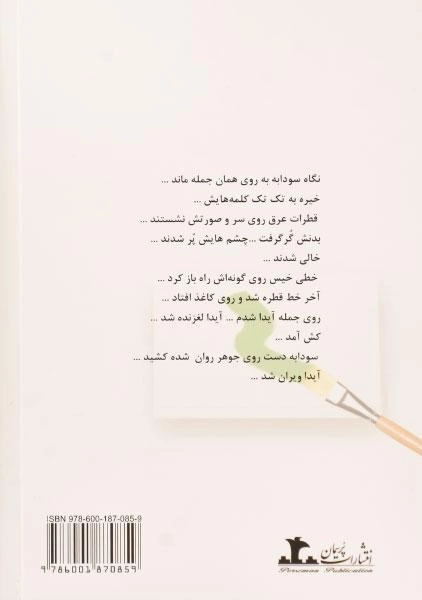 نگاه سودابه به روی همان جمله ماند ...
خیره به تک تک کلمه‌هایش ...
قطرات عرق روی سر و صورتش نشستند ...
بدنش گُر گرفت ...چشم هایش پُر شدند ...
خالی شدند ...
خطی خیس روی گونه‌اش راه باز کرد ...
آخر خط قطره شد و روی کاغذ افتاد ...
روی جمله آیدا شدم ... آیدا لغزنده شد ...
کش آمد ...
سودابه دست روی جوهر روان شده کشید ...
آیدا ویران شد ...
ISBN 978-600-187-085-9
9786001870859
انتشارات پُرسمان
Porseman Publication